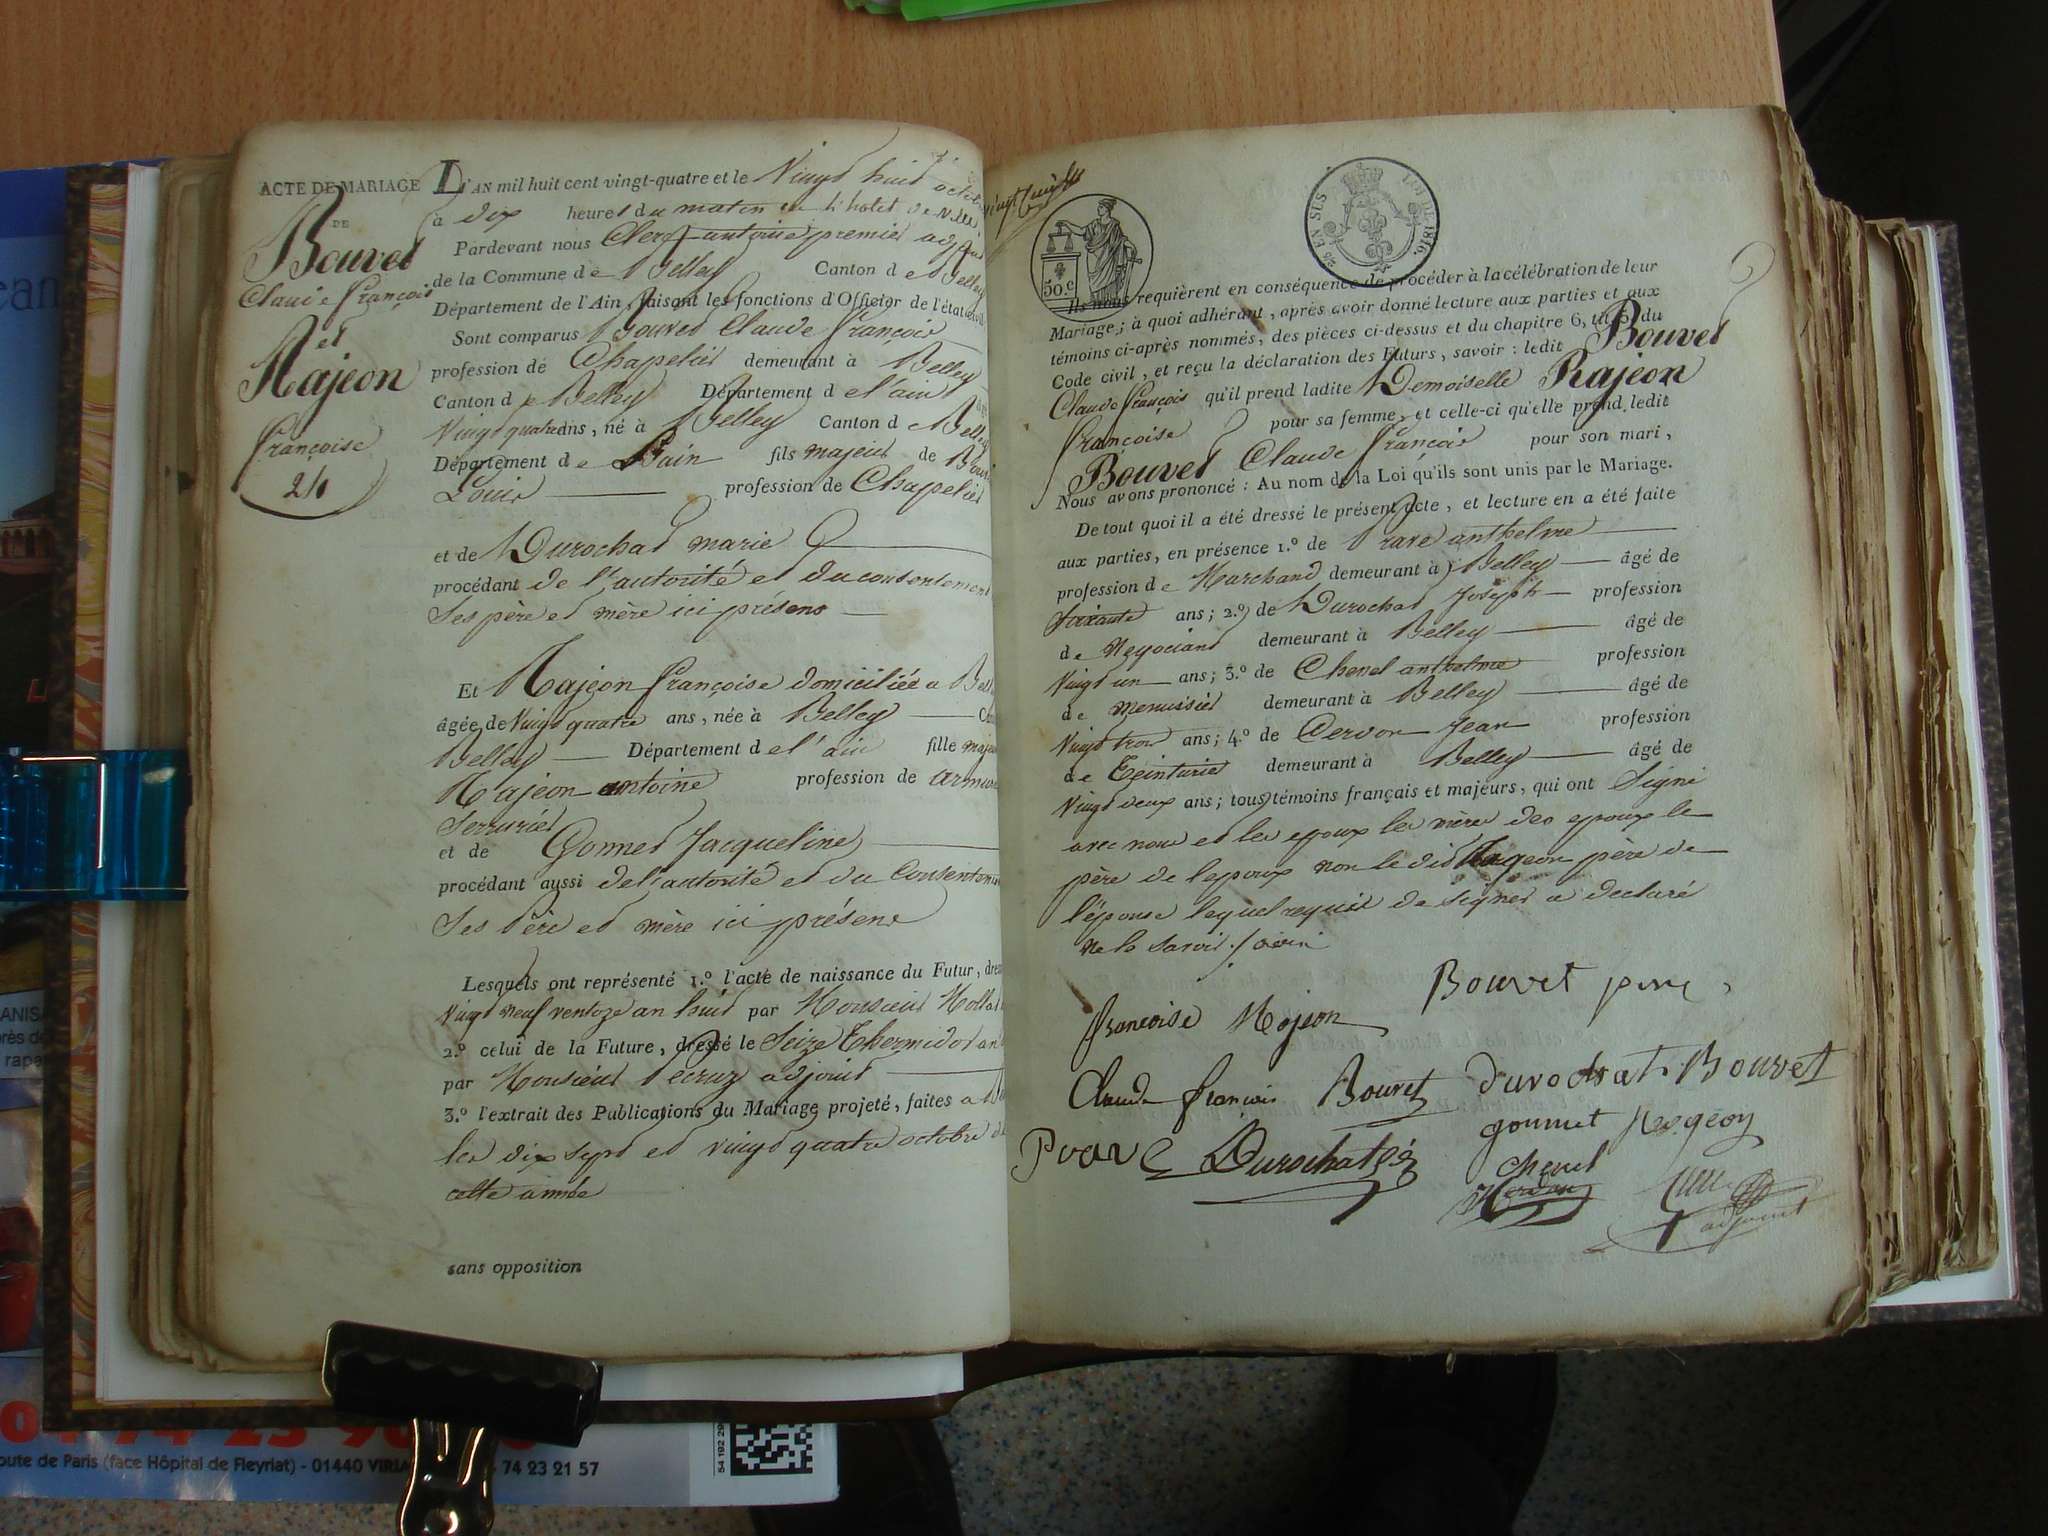 ACTE DE MARIAGE
DE
Bouvet
Claude françois
et
Rajeon
françoise
24
L'AN mil huit cent vingt-quatre et le Vingt huit octob
à dix heures du matin en l'hotel de Ville
Pardevant nous Clerc antoine premier adjoint
de la Commune de Belley Canton de Belley
Département de l'Ain, faisant les fonctions d'Officier de l'état civil
Sont comparus Bouvet Claude françois
profession de Chapelier demeurant à Belley
Canton de Belley Département de l'ain âgé
Vingt quatre ans, né à Belley Canton de Belley
Département de Lain fils majeur de Bouv
Louis profession de Chapelier
et de Durochat marie
procédant de l'autorité et du consentement
Ses père et mère ici présens
Et Rajeon françoise domiciliée a Bell
âgée de Vingt quatre ans, née à Belley C
Belley Département de l'ain fille maje
Rajeon antoine profession de armur
Serrurier
et de Gonnet Jacqueline
procédant aussi de l'autorité et du Consentem
Ses Père et mère ici présens
Lesquels ont représenté 1.º l'acte de naissance du Futur, dre
Vingt neuf ventoze an huit par Monsieur Mollet
2.º celui de la Future, dressé le Seize Thermidor an
par Monsieur Pecruz adjoint
3.º l'extrait des Publications du Mariage projeté, faites a B
les dix sept et vingt quatre octobre d
cette année
sans opposition
vingt huit
50.c
EN SUS
LOI DE 1816.
Ils nous requièrent en conséquence de procéder à la célébration de leur
Mariage; à quoi adhérant, après avoir donné lecture aux parties et aux
témoins ci-après nommés, des pièces ci-dessus et du chapitre 6, tit. 5 du
Code civil, et reçu la déclaration des Futurs, savoir : ledit Bouvet
Claude françois qu'il prend ladite Demoiselle Rajeon
françoise pour sa femme, et celle-ci qu'elle prend ledit
Bouvet Claude françois pour son mari,
Nous avons prononcé : Au nom de la Loi qu'ils sont unis par le Mariage.
De tout quoi il a été dressé le présent acte, et lecture en a été faite
aux parties, en présence 1.º de Prave anthelme
profession de Marchand demeurant à Belley âgé de
soixante ans; 2.º de Durochat Joseph profession
de Negociant demeurant à Belley âgé de
Vingt un ans; 3.º de Chenel anthelme profession
de menuisier demeurant à Belley âgé de
Vingt trois ans; 4.º de Cerdon Jean profession
de Teinturier demeurant à Belley âgé de
Vingt deux ans; tous témoins français et majeurs, qui ont Signé
avec nous et les epoux les mères des epoux le
père de lepoux non ledit Rageon père de
l'épouse lequel requis de signer a declaré
ne le savoir
Bouvet pere
francoise Rojeon
Claude francois Bouvet durochat Bouvet
gonnet Rogeon
Prave Durochat
Chenel
adjoint
ANISA
rapa
oute de Paris (face Hôpital de Fleyriat) - 01440 VIRIA 74 23 21 57